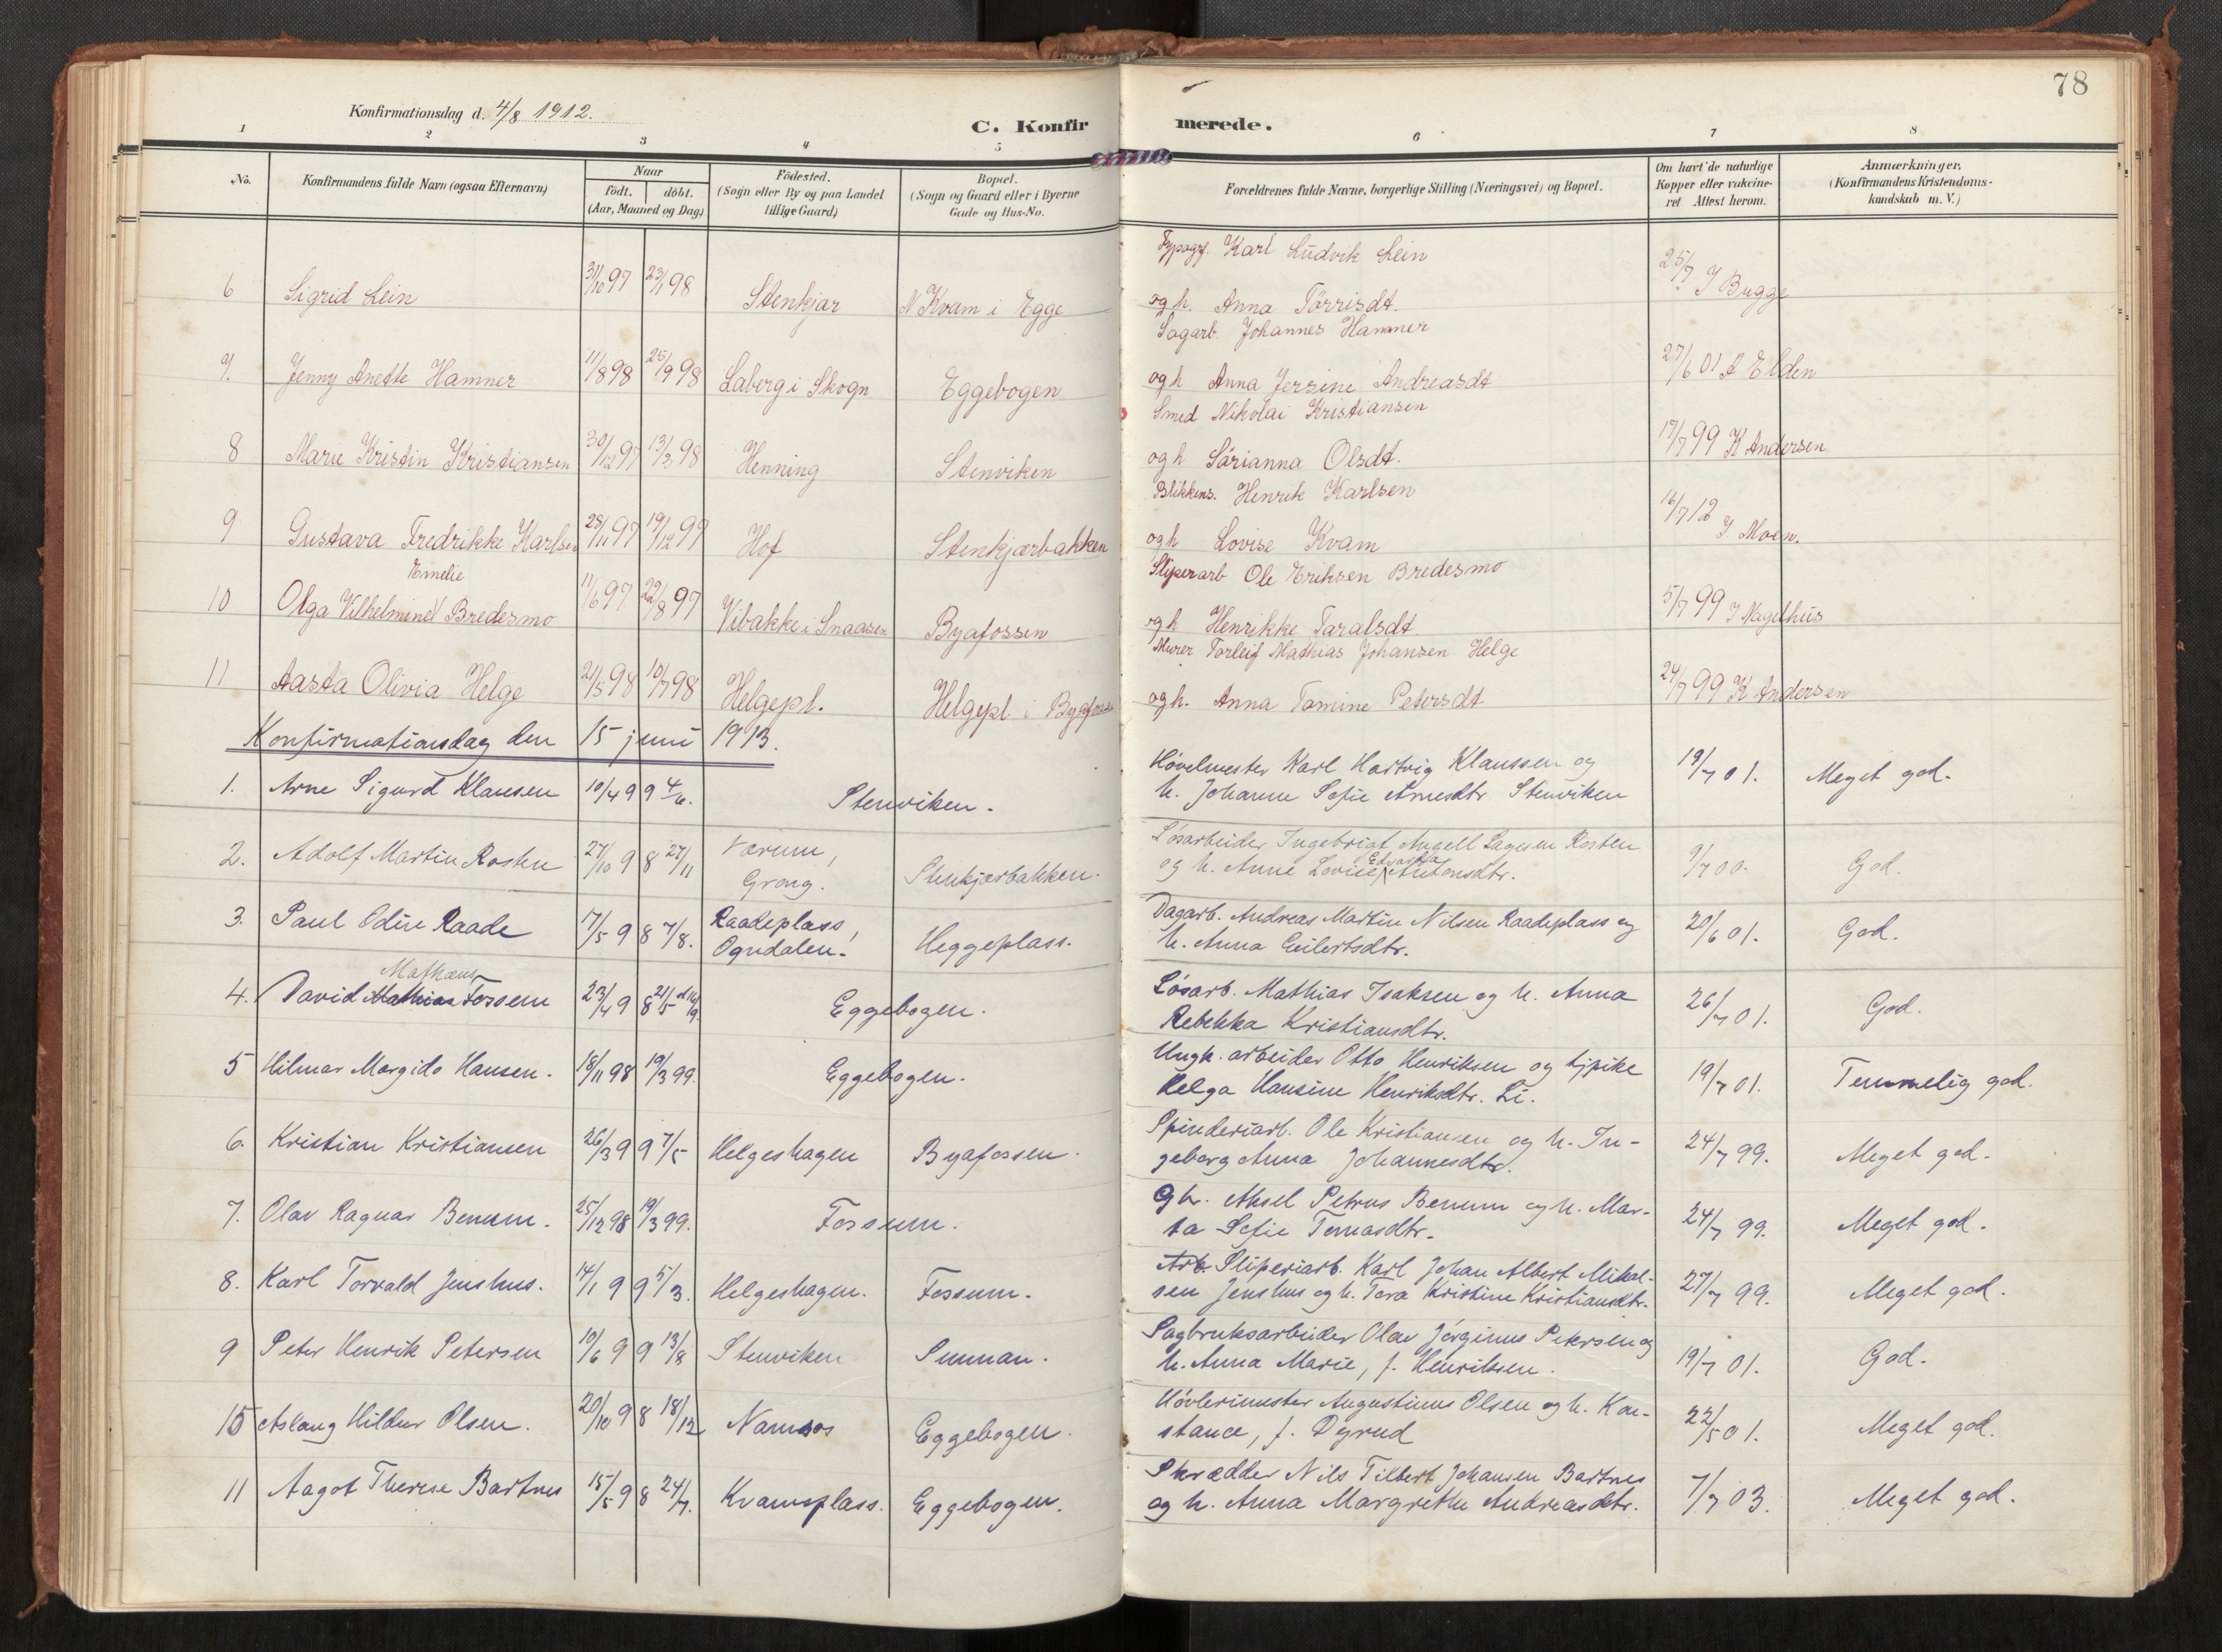 78
Konfirmationsdag d. 4/8 1912.
C. Konfirmerede.
1 2 3 4 5 6 7 8
No.
Konfirmandens fulde Navn (ogsaa Efternavn)
Naar
födt. döbt.
(Aar, Maaned og Dag)
Födested.
(Sogn eller By og paa Landet
tillige Gaard)
Bopæl.
(Sogn og Gaard eller i Byerne
Gade og Hus-No.
Forældrenes fulde Navne, borgerlige Stilling (Næringsvei) og Bopæl.
Om havt de naturlige
Kopper eller vakcine-
ret Attest herom.
Anmærkninger.
(Konfirmandens Kristendoms-
kundskab m. V.)
Typogr. Karl Ludvik Lein
6 Sigrid Lein 31/10 97 23/1 98 Stenkjær N. Kvam i Egge og h. Anna Törrisdt. 25/7 J Bugge
Sagarb. Johannes Hammer
7. Jenny Anette Hamner 11/8 98 25/9 98 Laberg i Skogn Eggebogen og h Anna Jersine Andreasdt 27/6 01 A Elden
Smed Nikolai Kristiansen
8 Marie Kristin Kristiansen 30/12 97 13/3 98 Henning Stenviken og h Särianna Olsdt. 17/7 99 K Andersen
Blikkens. Henrik Karlsen
9 Gustava Fredrikke Karlsen 28/11 97 19/12 97 Hof Stenkjærbakken og h Lovise Kvam 16/7 12 J. Moen.
Sliperarb Ole Eriksen Bredesmo
Emelie
10 Olga Vilhelmine Bredesmo 11/6 97 22/8 97 Vibakke i Snaasen Byafossen og h Henrikke Taralsdt 5/7 99 J Nagelhus
Murer Torleif Mathias Johansen Helge
11 Aasta Olivia Helge 21/5 98 10/7 98 Helgepl. Helgepl i Byafossen og h. Anna Tomine Petersdt 24/7 99 K Andersen
Konfirmationsdag den 15 juni 1913.
1. Arne Sigurd Klausen 10/4 99 4/6. Stenviken. Hövelmester Karl Hartvig Klaussen og 19/7 01. Meget god.
h. Johanne Sofie Arnesdtr. Stenviken
2. Adolf Martin Rosten 27/10 98 27/11 Værum, Grong. Stenkjærbakken. Lösarbeider Ingebrigt Angell Lagesen Rosten 9/7 00. God.
og h. Anne Lovise Edvarda Antonsdtr.
3. Paul Odin Raade 17/5 98 7/8. Raadeplass, Ogndalen. Heggeplass. Dagarb. Andreas Martin Nilsen Raadeplass og 20/6 01. God.
h. Anna Eilertsdtr.
Mathæus
4. David Mathias Fossem 23/4 98 21/5 Eggebogen. Lösarb. Mathias Isaksen og h. Anna 26/7 01. God.
Rebekka Kristiansdtr.
5 Hilmar Margido Hansen. 18/11 98 19/3 99. Eggebogen. Ungk. arbeider Otto Henriksen og tj.pike 19/7 01. Temmelig god.
Helga Hansine Henriksdtr. Li.
6. Kristian Kristiansen 26/3 99 7/5 Helgeshagen Byafossen. Spinderiarb. Ole Kristiansen og h. In- 24/7 99. Meget god.
geborg Anna Johannesdtr.
7. Olav Ragnar Benum. 25/12 98 19/3 99. Fossum. Gbr. Aksel Petrus Benum og h. Mar- 24/7 99. Meget god.
ta Sofie Tomasdtr.
8. Karl Torvald Jenshus. 14/1 99 5/3. Helgeshagen. Fossum. Arb. Sliperiarb. Karl Johan Albert Mikal- 27/7 99. Meget god.
sen Jenshus og h. Tora Kristine Kristiansdtr.
9 Peter Henrik Petersen 10/6 99 13/8 Stenviken. Sunnan. Sagbruksarbeider Olav Jörginus Petersen og 19/7 01. God.
h. Anna Marie, f. Henriksen.
10 Aslaug Hildur Olsen. 20/10 98 18/12 Namsos Eggebogen. Hövlerimester Augustinus Olsen og h. Kon- 22/5 01. Meget god.
stance, f. Dyrud
11 Aagot Therese Bartnes 15/5 98 24/7. Kvamsplass. Eggebogen. Skrædder Nils Tilbert Johansen Bartnes 7/7 03. Meget god.
og h. Anna Margrethe Andreasdtr.